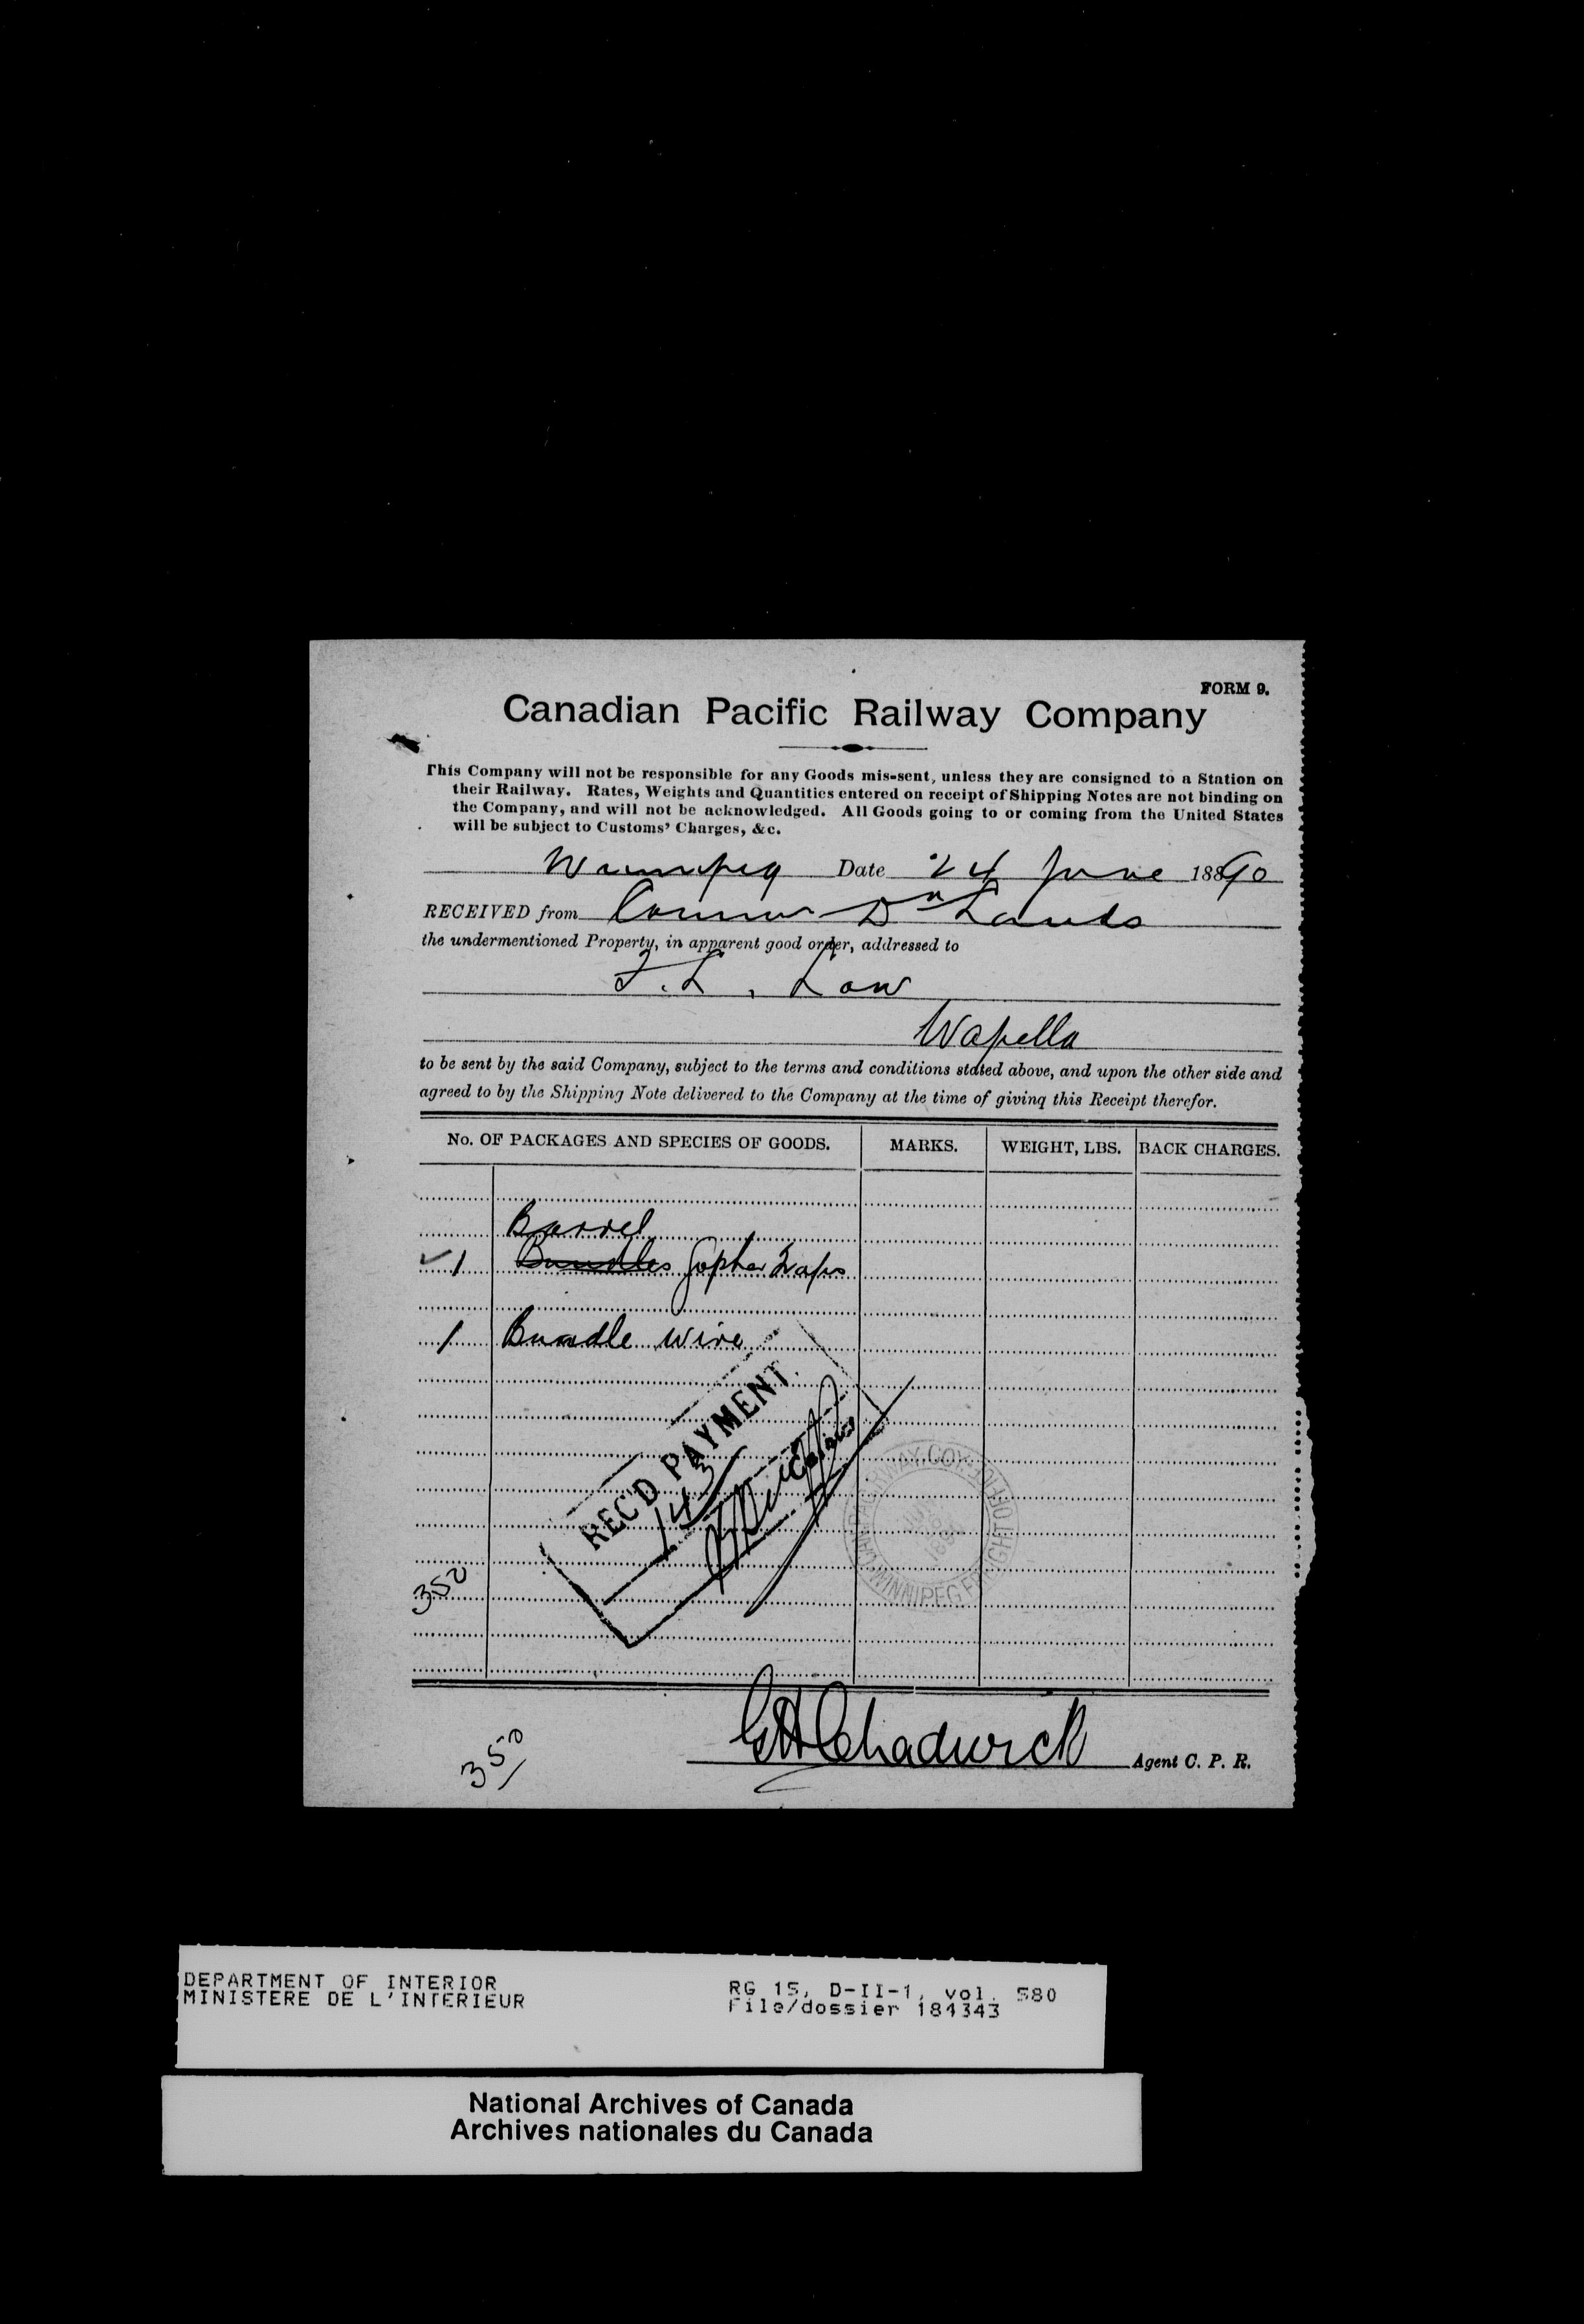 FORM 9.
Canadian Pacific Railway Company
This Company will not be responsible for any Goods mis-sent, unless they are consigned to a Station on
their Railway. Rates, Weights and Quantities entered on receipt of Shipping Notes are not binding on
the Company, and will not be acknowledged. All Goods going to or coming from the United States
will be subject to Customs' Charges, &c.
Winnipeg Date 24 June 1890
RECEIVED from Commr Dn Lands
the undermentioned Property, in apparent good order, addressed to
Law
Wapella
to be sent by the said Company, subject to the terms and conditions stated above, and upon the other side and
agreed to by the Shipping Note delivered to the Company at the time of giving this Receipt therefor.
No. OF PACKAGES AND SPECIES OF GOODS. MARKS. WEIGHT, LBS. BACK CHARGES.
Barrel
1 Bundles Gopher Traps
1 Bundle wire
REC'D PAYMENT
143
RAILWAY COY
WINNIPEG FREIGHT
350
350
G H Chadwick Agent C. P. R.
DEPARTMENT OF INTERIOR
MINISTERE DE L'INTERIEUR
RG 15, D-II-1, vol. 580
File/dossier 184343
National Archives of Canada
Archives nationales du Canada